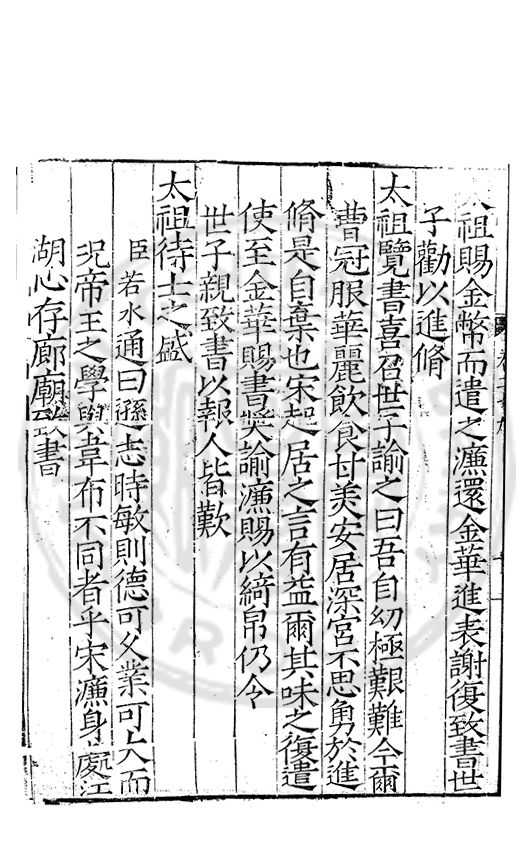 祖賜金幣而遣之濂還金華進表謝復致書世
子勸以進脩
太祖覽書喜召世子諭之曰吾自幼極艱難今爾
曹冠服華麗飲食甘美安居深宮不思勇於進
脩是自棄也宋起居之言有益爾其味之復遣
使至金華賜書奬諭濂賜以綺帛仍令
世子親致書以報人皆歎
太祖待士之盛
臣若水通曰遜志時敏則德可久業可大而
况帝王之學與韋布不同者乎宋濂身處江
湖心存廊廟致書